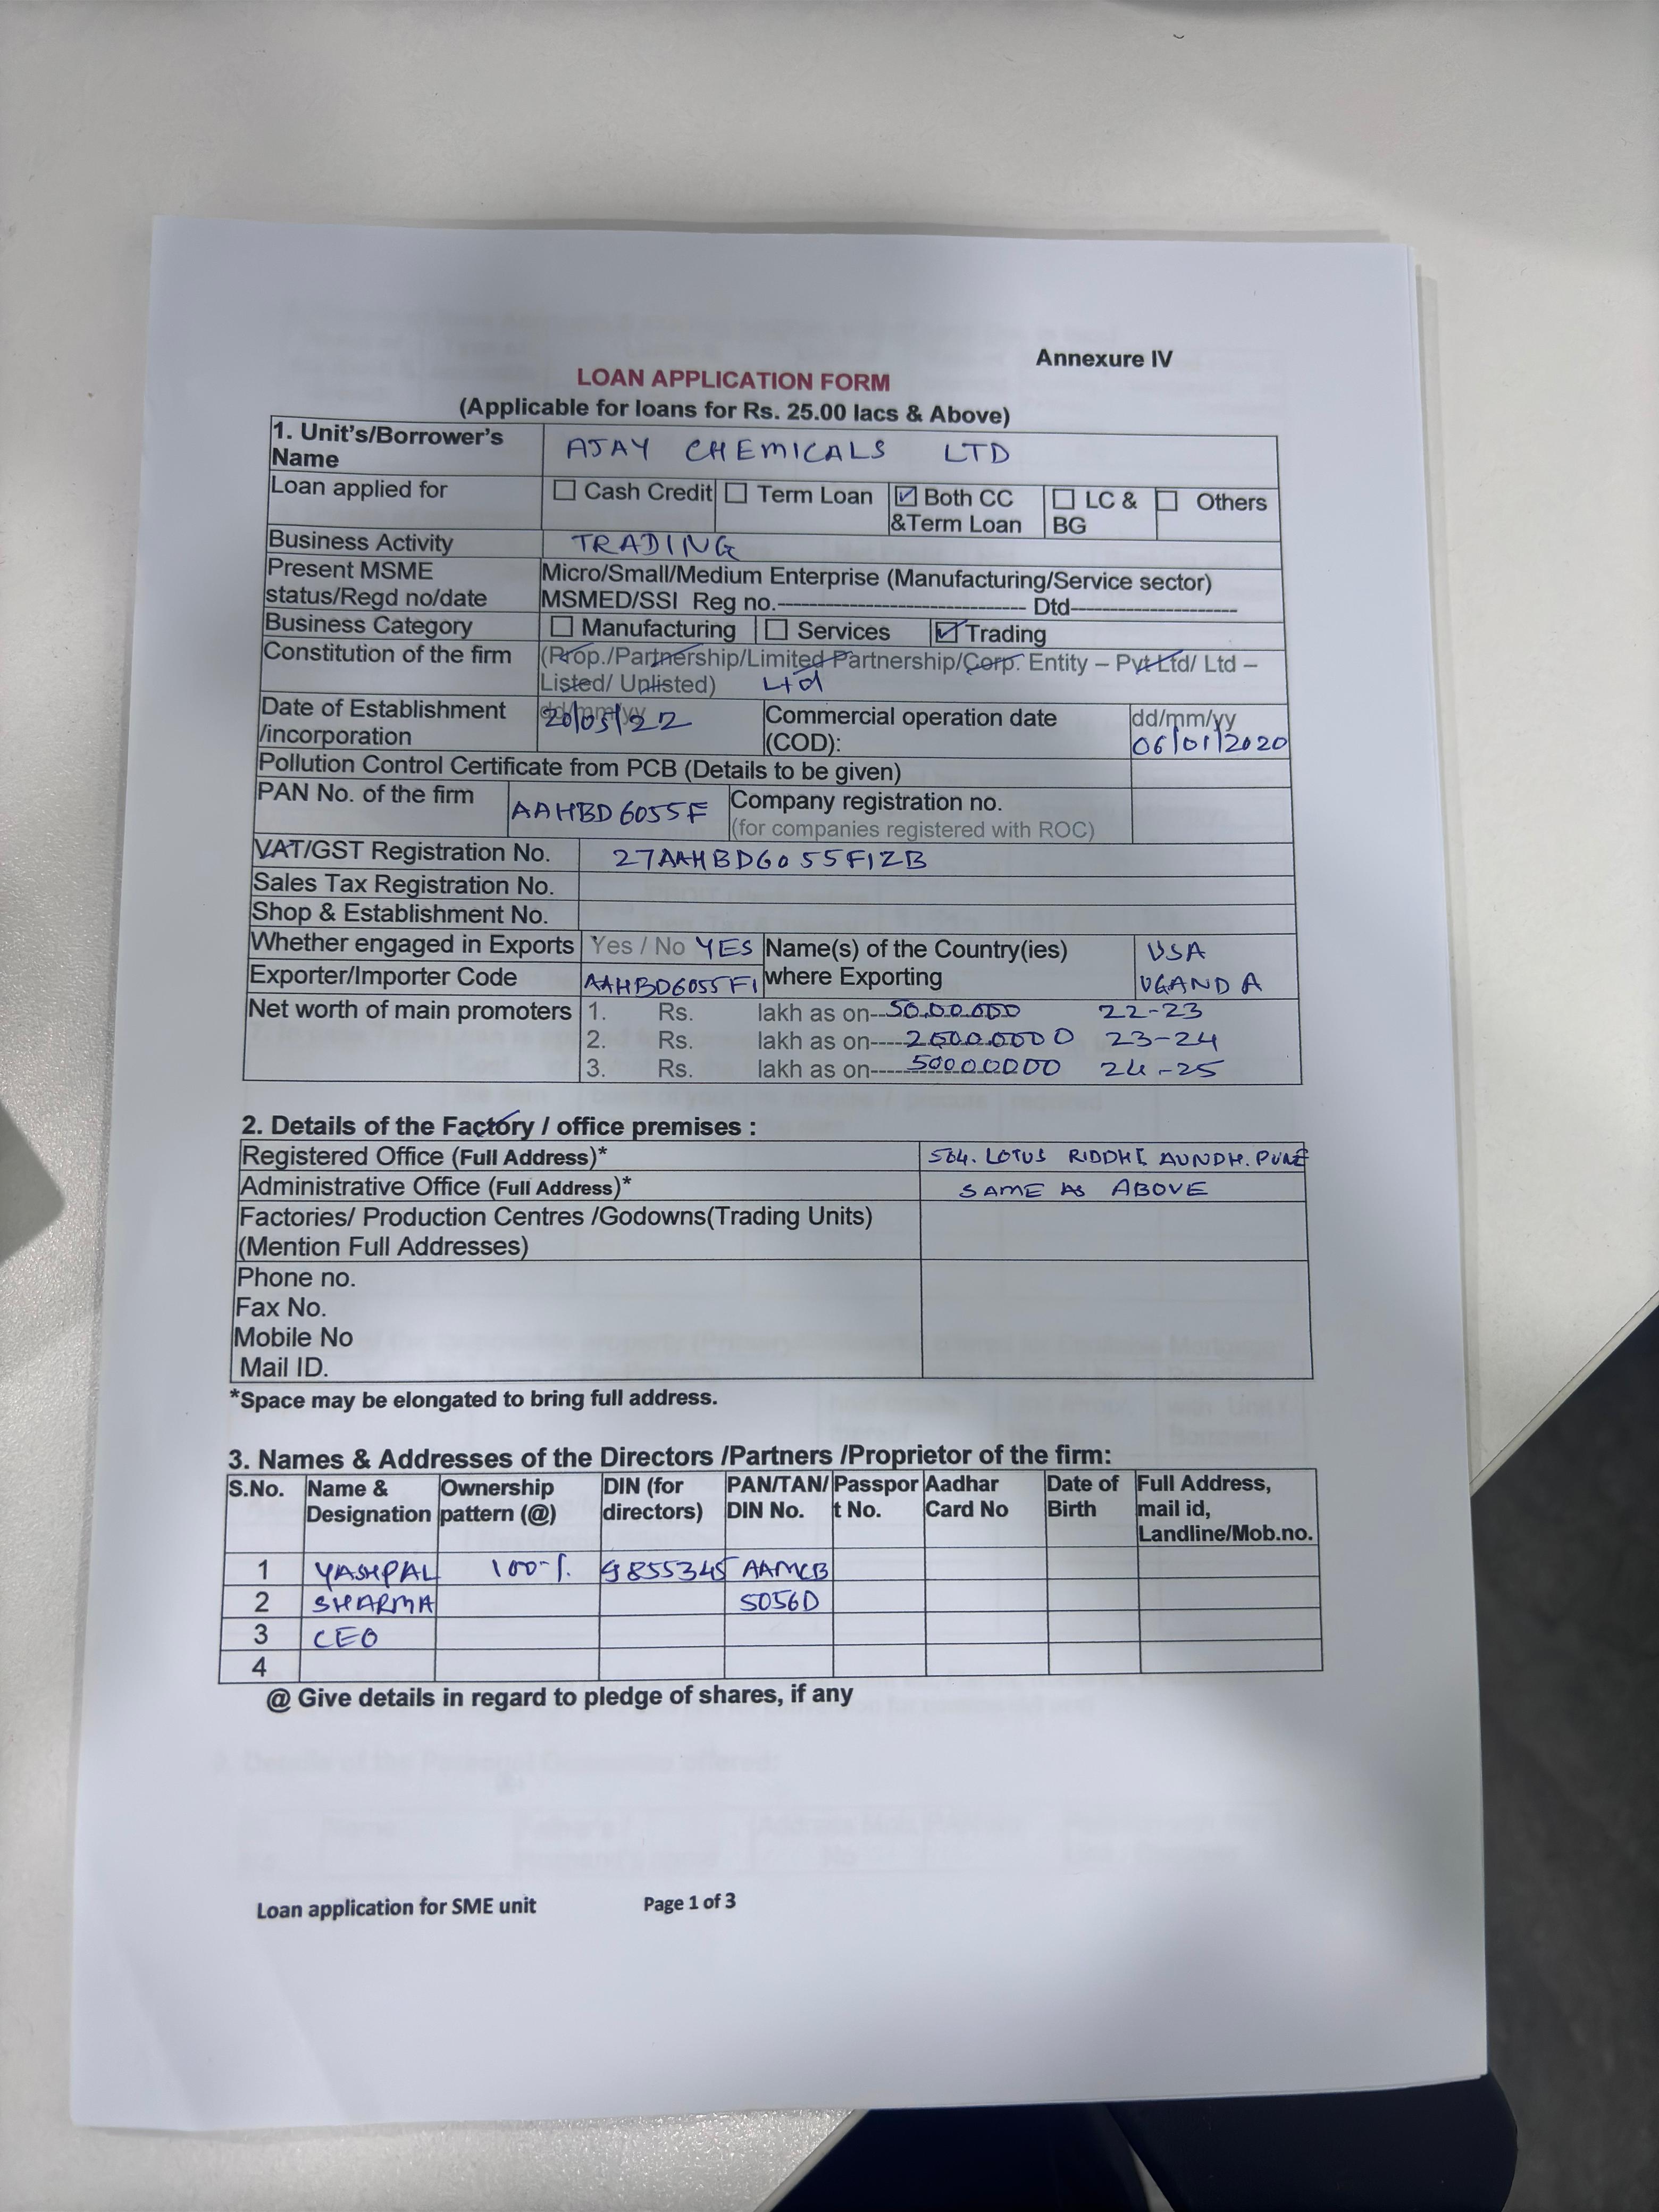 Annexure IV
LOAN APPLICATION FORM
(Applicable for loans for Rs. 25.00 lacs & Above)
1. Unit's/Borrower's Name AJAY CHEMICALS LTD
Loan applied for ☐ Cash Credit ☐ Term Loan ☑ Both CC &Term Loan ☐ LC & BG ☐ Others
Business Activity TRADING
Present MSME status/Regd no/date Micro/Small/Medium Enterprise (Manufacturing/Service sector)
MSMED/SSI Reg no.-------------------------------- Dtd----------------------
Business Category ☐ Manufacturing ☐ Services ☑ Trading
Constitution of the firm (Prop./Partnership/Limited Partnership/Corp. Entity – Pvt Ltd/ Ltd –
Listed/ Unlisted) Ltd
Date of Establishment /incorporation dd/mm/yy 20/05/22 Commercial operation date (COD): dd/mm/yy 06/01/2020
Pollution Control Certificate from PCB (Details to be given)
PAN No. of the firm AAHBD6055F Company registration no.
(for companies registered with ROC)
VAT/GST Registration No. 27AAHBD6055F1ZB
Sales Tax Registration No.
Shop & Establishment No.
Whether engaged in Exports Yes / No YES Name(s) of the Country(ies) where Exporting USA
Exporter/Importer Code AAHBD6055F1 UGANDA
Net worth of main promoters 1. Rs. lakh as on-- 22-23
2. Rs. lakh as on---- 23-24
3. Rs. lakh as on---- 50000000 24-25
2. Details of the Factory / office premises :
Registered Office (Full Address)* 504. LOTUS RIDDHI AUNDH. PUNE
Administrative Office (Full Address)* SAME AS ABOVE
Factories/ Production Centres /Godowns(Trading Units)
(Mention Full Addresses)
Phone no.
Fax No.
Mobile No
Mail ID.
*Space may be elongated to bring full address.
3. Names & Addresses of the Directors /Partners /Proprietor of the firm:
S.No. Name & Designation Ownership pattern (@) DIN (for directors) PAN/TAN/ DIN No. Passpor t No. Aadhar Card No Date of Birth Full Address, mail id, Landline/Mob.no.
1 YASHPAL 100% 9855345 AAMCB
2 SHARMA 5056D
3 CEO
4
@ Give details in regard to pledge of shares, if any
Loan application for SME unit Page 1 of 3